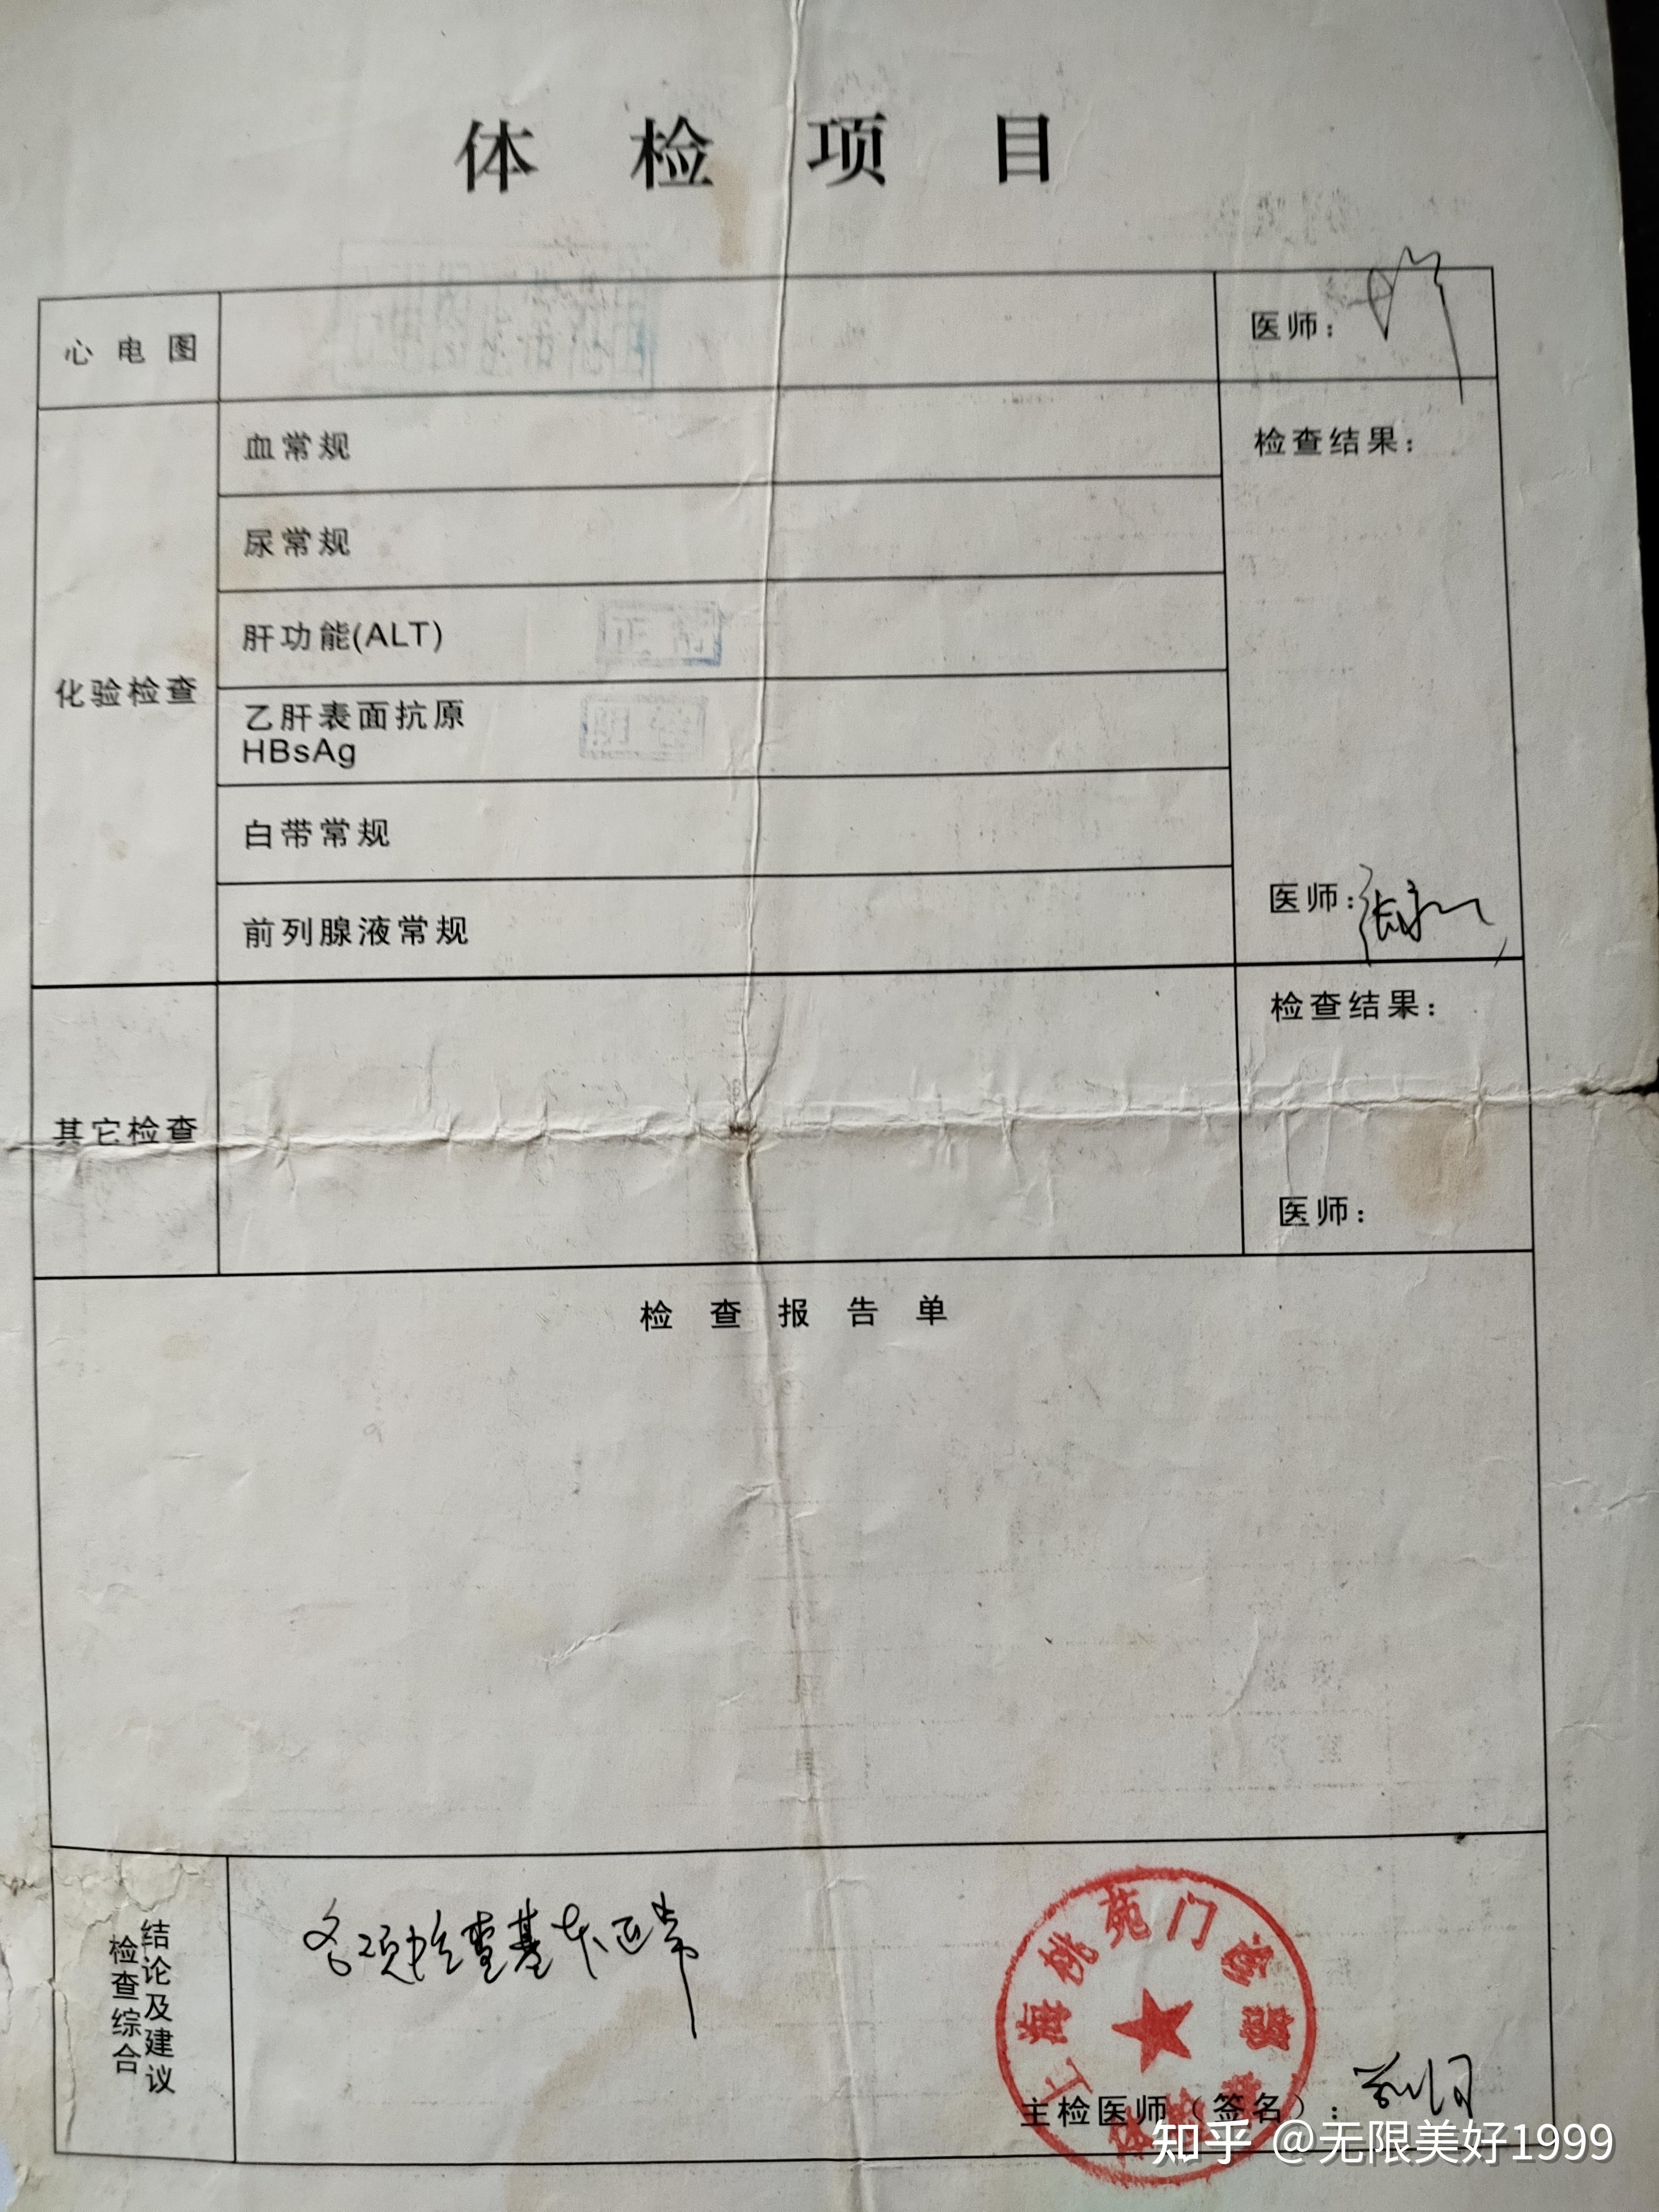 体检项目
心电图
医师：
化验检查
血常规
检查结果：
尿常规
肝功能(ALT)
乙肝表面抗原
HBsAg
白带常规
前列腺液常规
医师：
其它检查
检查结果：
医师：
检查报告单
检查综合
结论及建议
各项检查基本正常
上海桃苑门诊部
主检医师（签名）：
知乎 @无限美好1999